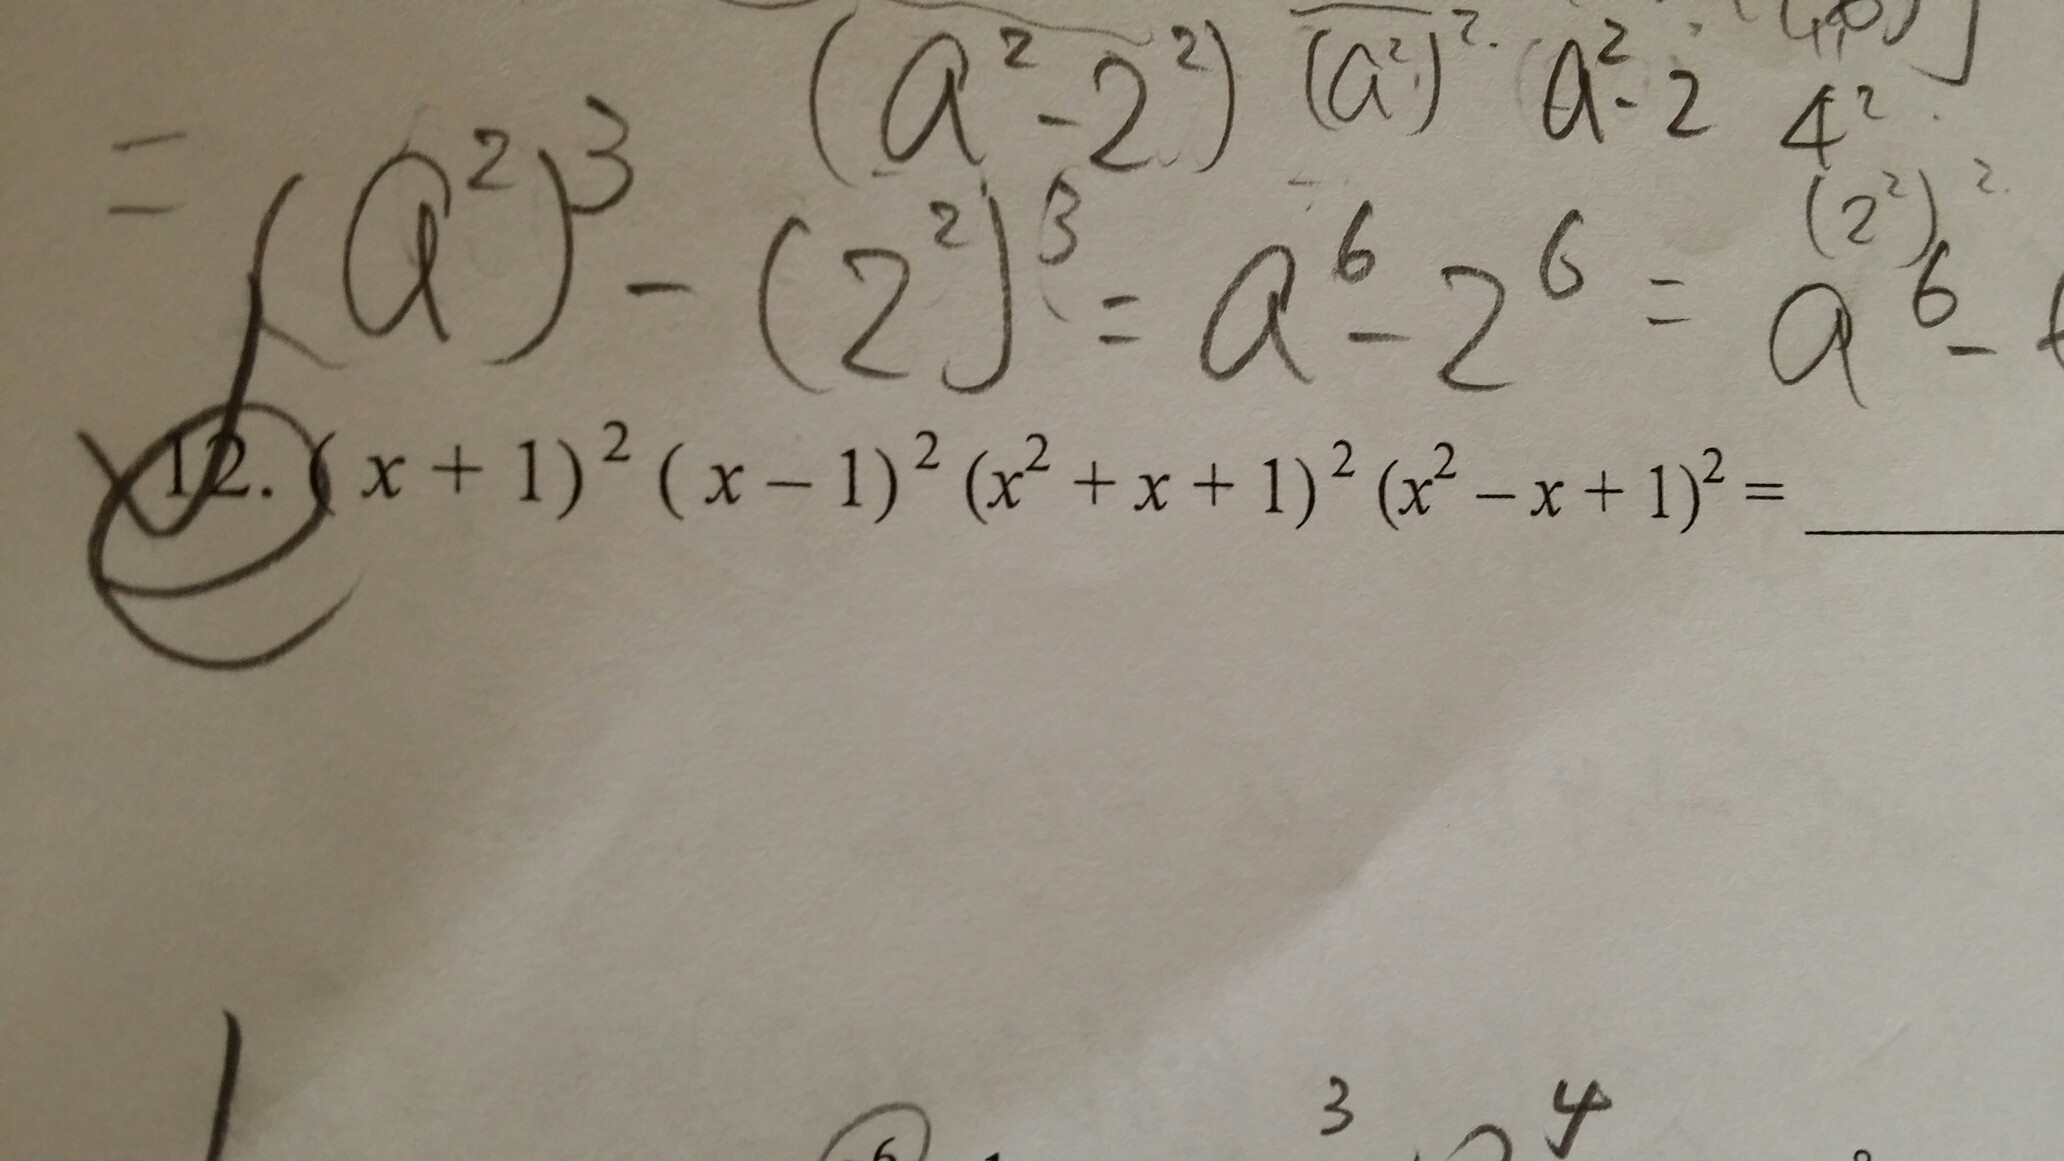 (a²-2²) (a²)². a²-2 4²
(2²)².
= (a²)³ - (2²)³ = a⁶ - 2⁶ = a⁶ -
12. ( x + 1)² ( x – 1)² (x² + x + 1)² (x² – x + 1)² = ______
3 4
6